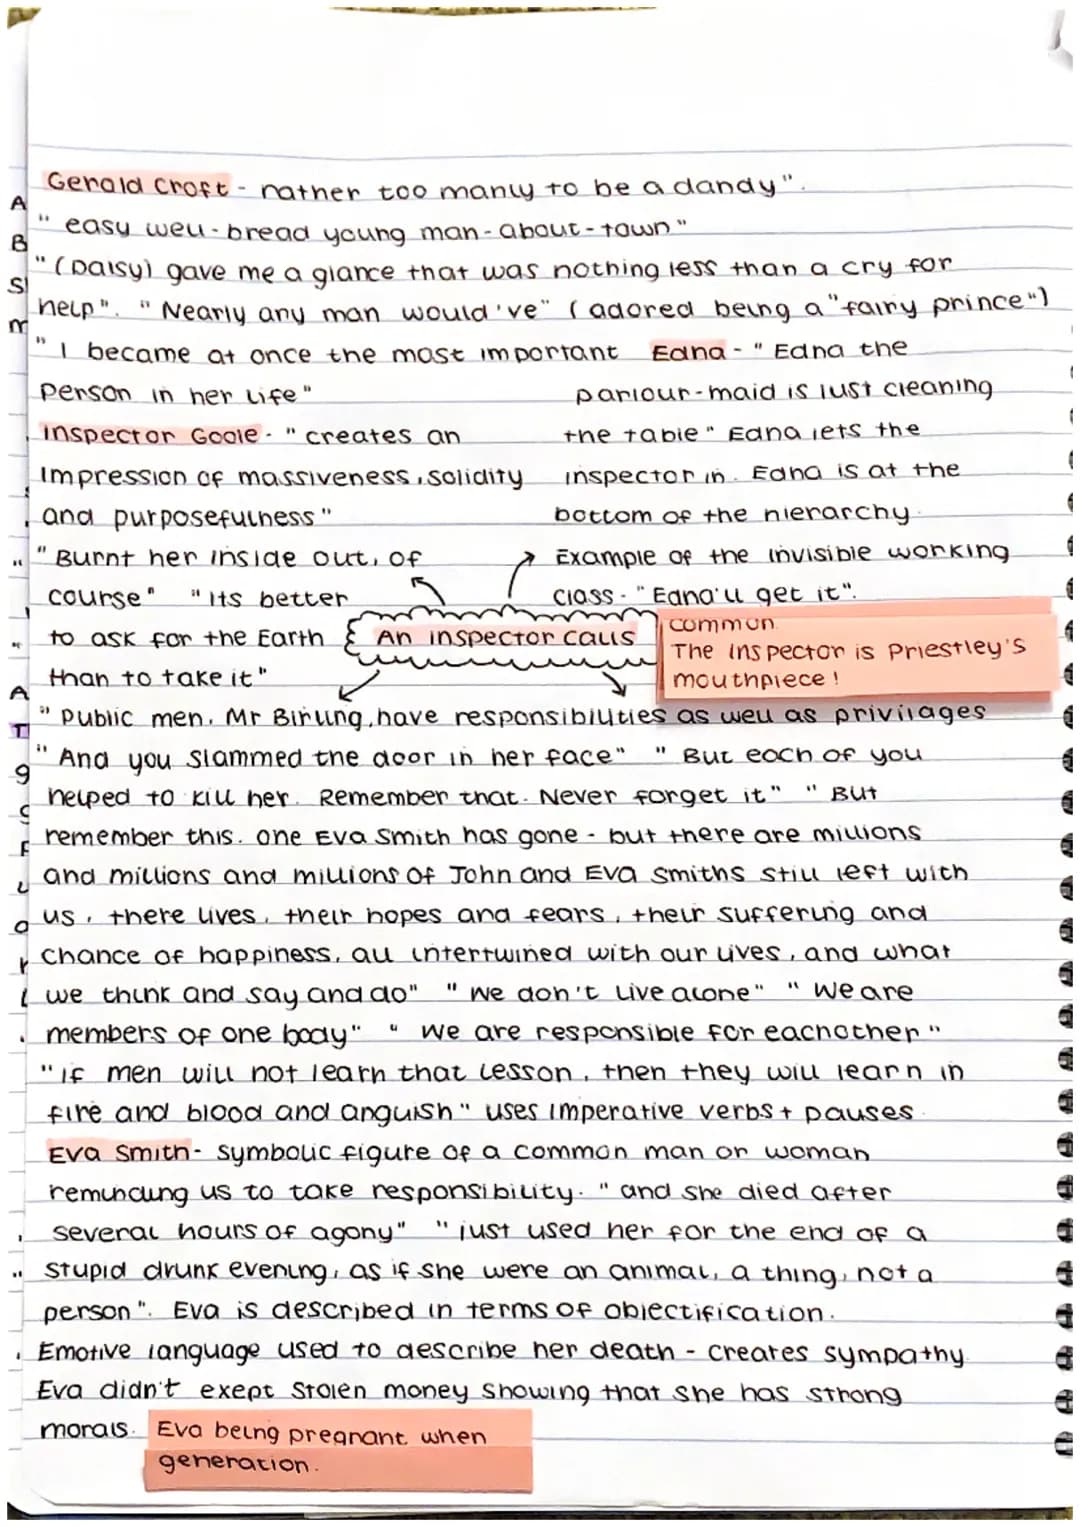 Gerald Croft - rather too manly to be a dandy".
" easy well-bread young man-about-town"
" (Daisy) gave me a glance that was nothing less than a cry for
help". " Nearly any man would've" (adored being a "fairy prince")
" I became at once the most important
person in her life"
Edna - " Edna the
parlour-maid is just cleaning
the table" Edna lets the
inspector in. Edna is at the
bottom of the hierarchy.
Example of the invisible working
class - "Edna'll get it".
Inspector Goole - " creates an
impression of massiveness, solidity
and purposefulness"
" Burnt her inside out, of
course" " Its better
to ask for the Earth
than to take it"
An inspector calls
common.
The Inspector is Priestley's
mouthpiece!
" Public men, Mr Birling, have responsibilities as well as privilages
" And you slammed the door in her face" " But each of you
helped to kill her. Remember that. Never forget it" " But
remember this. one Eva Smith has gone - but there are millions
and millions and millions of John and Eva Smiths still left with
us, there lives, their hopes and fears, their suffering and
chance of happiness, all intertwined with our lives, and what
we think and say and do" " We don't live alone" " We are
members of one body" " We are responsible for eachother"
" if men will not learn that lesson, then they will learn in
fire and blood and anguish" uses imperative verbs + pauses.
Eva Smith - Symbolic figure of a common man or woman
reminding us to take responsibility. " and she died after
several hours of agony" " just used her for the end of a
stupid drunk evening, as if she were an animal, a thing, not a
person". Eva is described in terms of objectification.
Emotive language used to describe her death - creates sympathy.
Eva didn't exept stolen money showing that she has strong
morals.
Eva being pregnant when
generation.